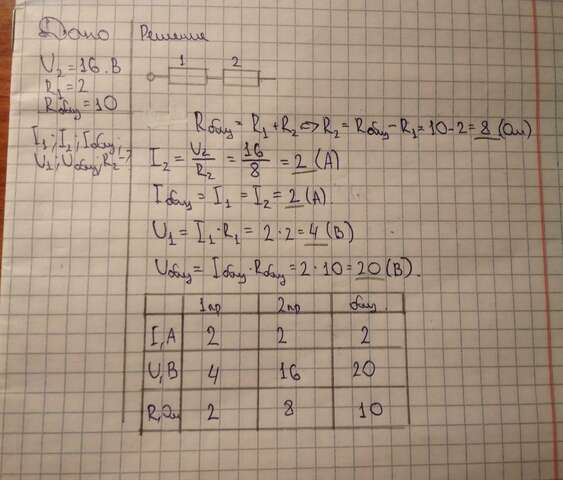 Дано
Решение
U₂ = 16 В
R₁ = 2
Rобщ = 10
I₁; I₂; Iобщ;
U₁; Uобщ; R₂ - ?
1 2
Rобщ = R₁ + R₂ <=> R₂ = Rобщ - R₁ = 10 - 2 = 8 (Ом)
I₂ = U₂/R₂ = 16/8 = 2 (А)
Iобщ = I₁ = I₂ = 2 (А)
U₁ = I₁ · R₁ = 2 · 2 = 4 (В)
Uобщ = Iобщ · Rобщ = 2 · 10 = 20 (В).
1пр 2пр общ.
I, А 2 2 2
U, В 4 16 20
R, Ом 2 8 10